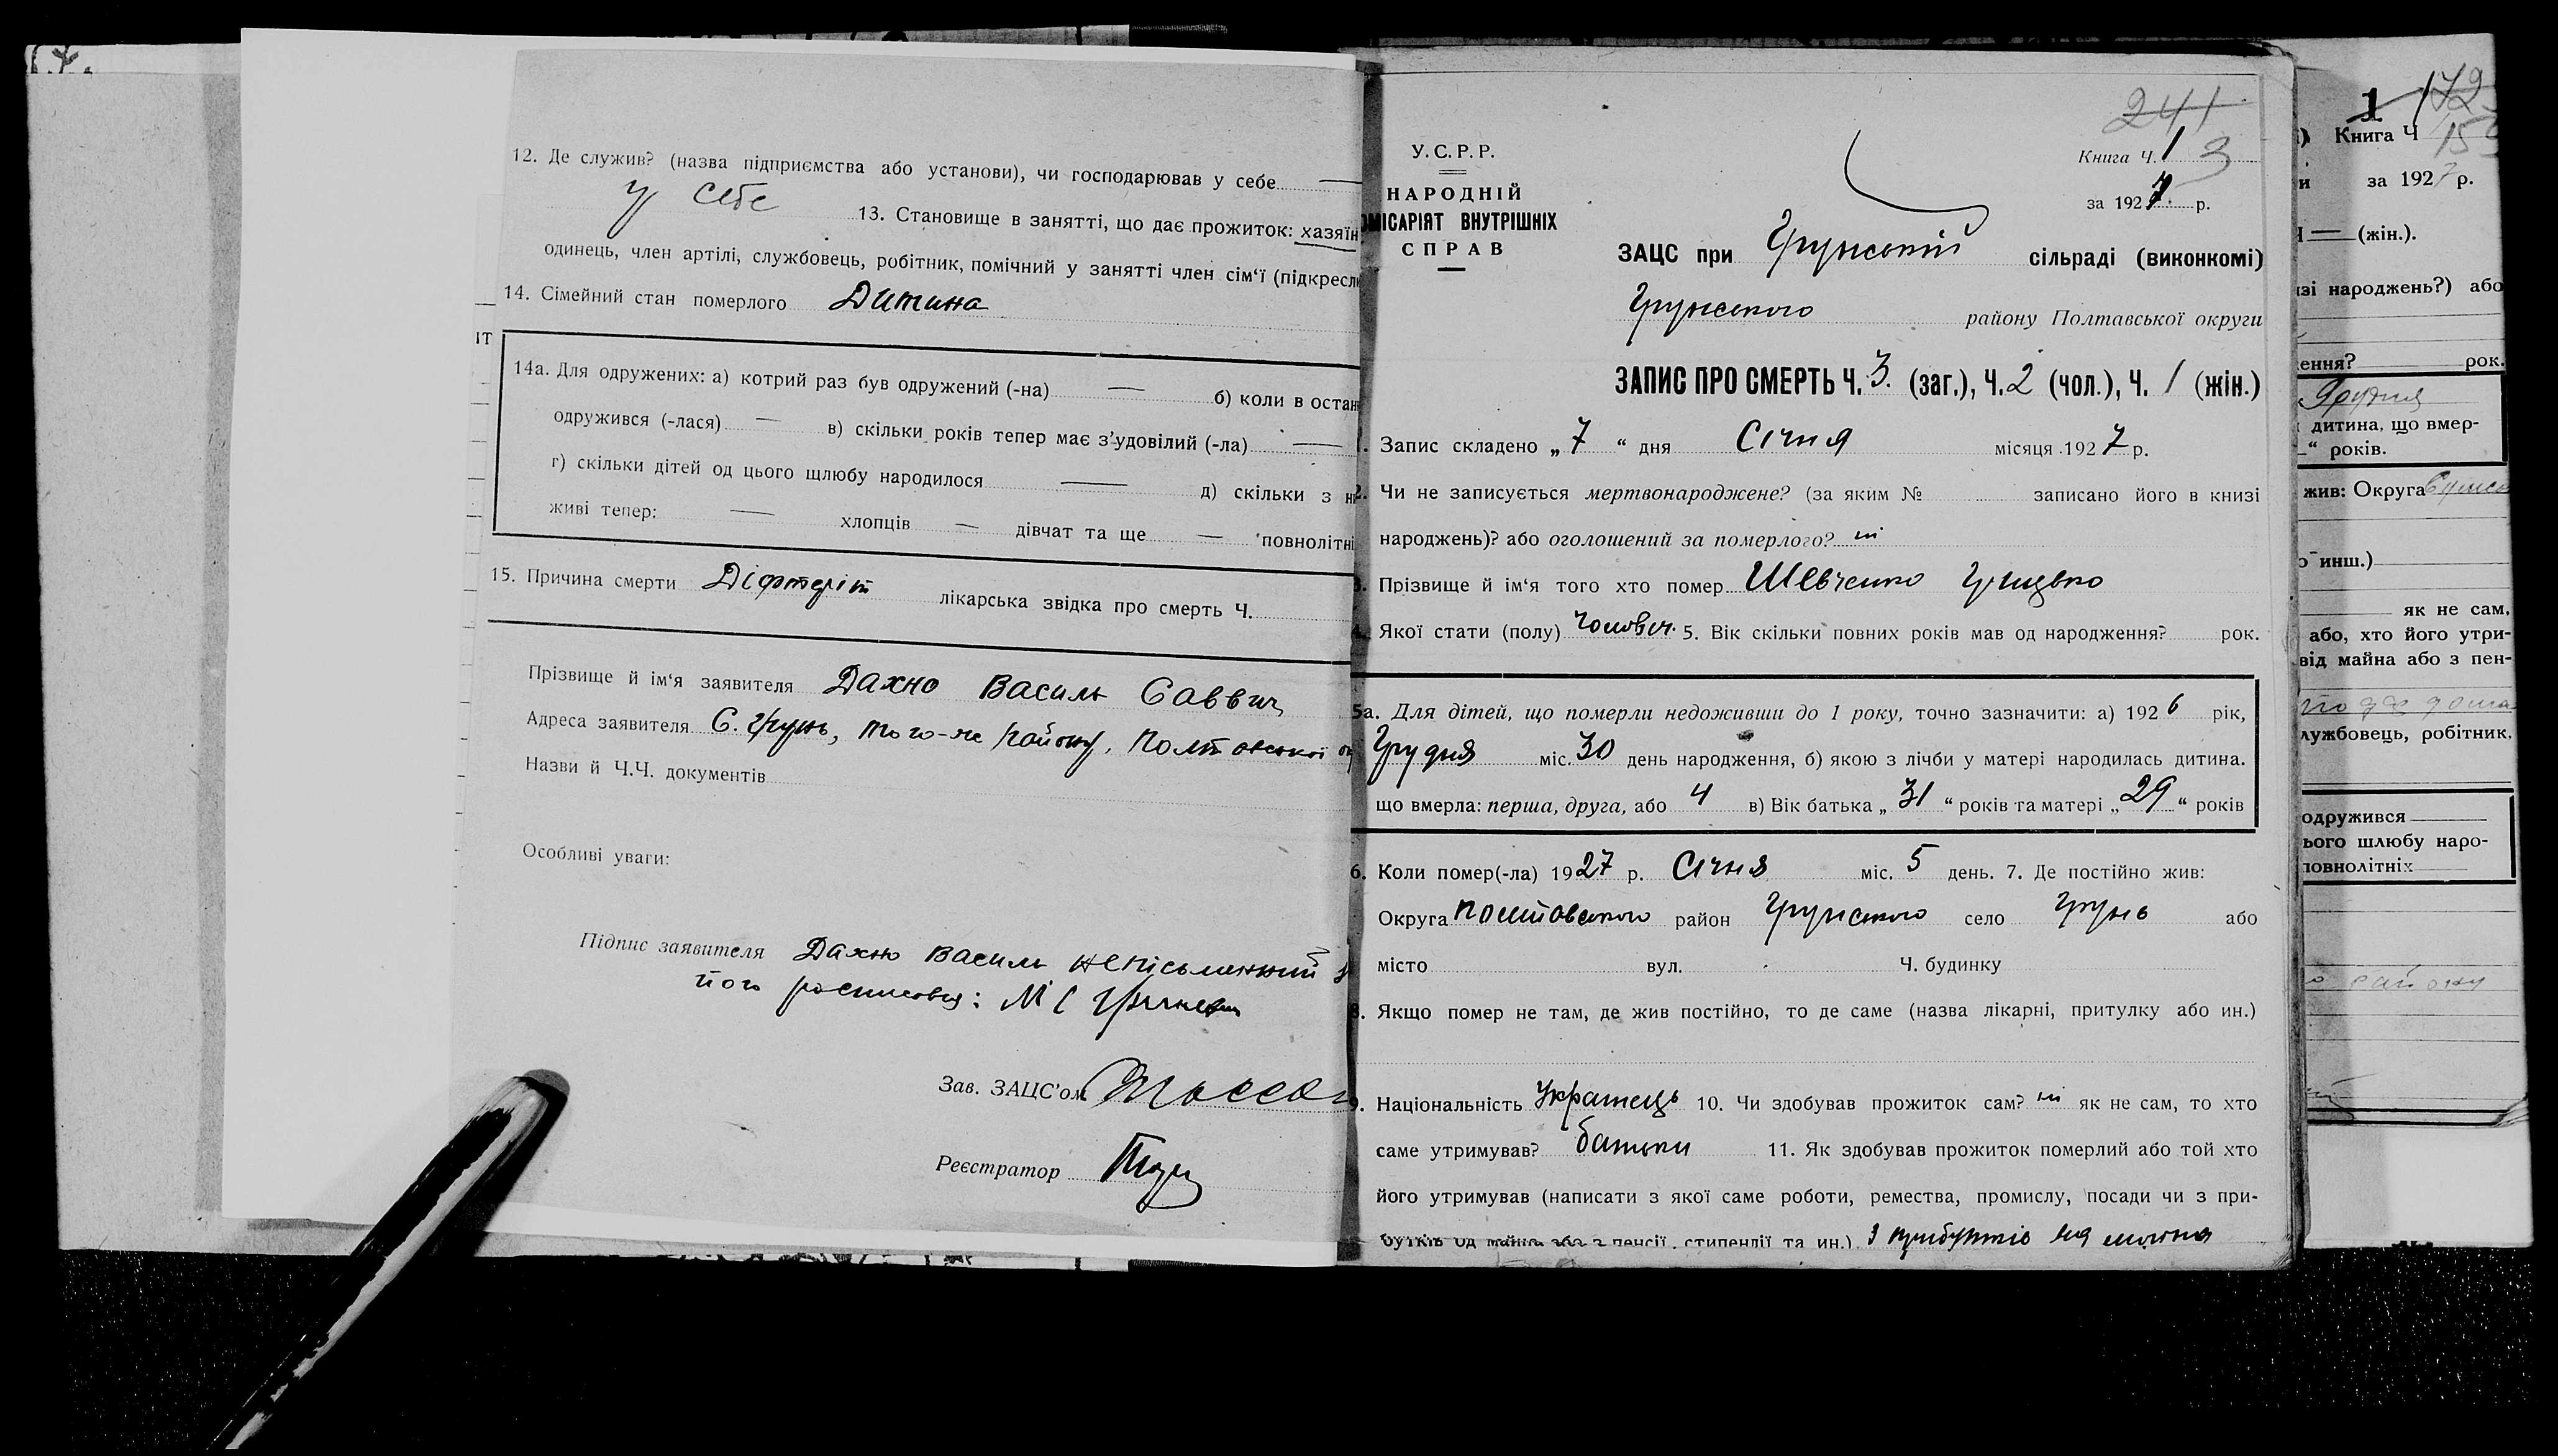 12. Де служив? (назва підприємства або установи), чи господарював у себе —
у себе 13. Становище в занятті, що дає прожиток: хазяїн
одинець, член артілі, службовець, робітник, помічний у занятті член сім'ї (підкресли
14. Сімейний стан померлого Дитина
14а. Для одружених: а) котрий раз був одружений (-на) — б) коли в остан
одружився (-лася) — в) скільки років тепер має з'удовілий (-ла) —
г) скільки дітей од цього шлюбу народилося — д) скільки з ни
живі тепер: — хлопців — дівчат та ще — повнолітні
15. Причина смерти Діфтеріт лікарська звідка про смерть Ч.
Прізвище й ім'я заявителя Дахно Василь Саввич
Адреса заявителя С. Грунь, того-же району, Полтавської ок
Назви й Ч.Ч. документів
Особливі уваги:
Підпис заявителя Дахно Василь неписьменний
його
Зав. ЗАЦС'ом
Реєстратор
241
У.С.Р.Р.
НАРОДНІЙ
ОМІСАРІЯТ ВНУТРІШНІХ
СПРАВ
Книга Ч. 1 3
за 1927 р.
ЗАЦС при Грунській сільраді (виконкомі)
Грунського району Полтавської округи
ЗАПИС ПРО СМЕРТЬ Ч. 3. (заг.), Ч. 2 (чол.), Ч. 1 (жін.)
1. Запис складено „7“ дня Січня місяця 1927 р.
2. Чи не записується мертвонароджене? (за яким № записано його в книзі
народжень)? або оголошений за померлого? ні
3. Прізвище й ім'я того хто помер Шевченко Грицько
4. Якої стати (полу) чоловіч. 5. Вік скільки повних років мав од народження? рок.
5а. Для дітей, що померли недоживши до 1 року, точно зазначити: а) 1926 рік,
Грудня міс. 30 день народження, б) якою з лічби у матері народилась дитина.
що вмерла: перша, друга, або 4 в) Вік батька „31“ років та матері „29“ років
6. Коли помер(-ла) 1927 р. Січня міс. 5 день. 7. Де постійно жив:
Округа Полтавського район Грунського село Грунь або
місто вул. Ч. будинку
8. Якщо помер не там, де жив постійно, то де саме (назва лікарні, притулку або ин.)
9. Національність Українець 10. Чи здобував прожиток сам? ні як не сам, то хто
саме утримував? батьки 11. Як здобував прожиток померлий або той хто
його утримував (написати з якої саме роботи, ремества, промислу, посади чи з при-
бутків од майна або з пенсії, стипендії та ин.) з прибутків від майна
1 172
Книга Ч 15
за 1927 р.
— (жін.).
ізі народжень?) або
ення? рок.
Грудня
дитина, що вмер-
“ років.
жив: Округа
о инш.)
як не сам,
або, хто його утри-
від майна або з пен-
лужбовець, робітник.
одружився
ього шлюбу наро-
повнолітніх
району